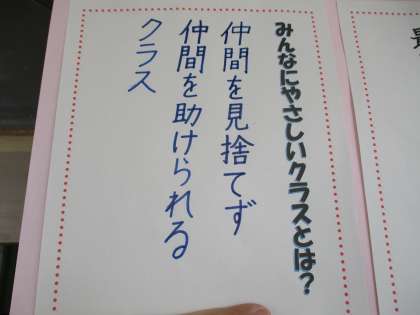 みんなにやさしいクラスとは?
仲間を見捨てず
仲間を助けられる
クラス